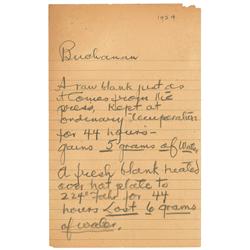 1929
Buchanan
A raw blank just as
it comes from the
press, Kept at
ordenary Temperature
for 44 hours -
gains 5 grams of water
a fresh blank heated
over hot plate to
224° Fahr for 44
hours Lost 6 grams
of water.